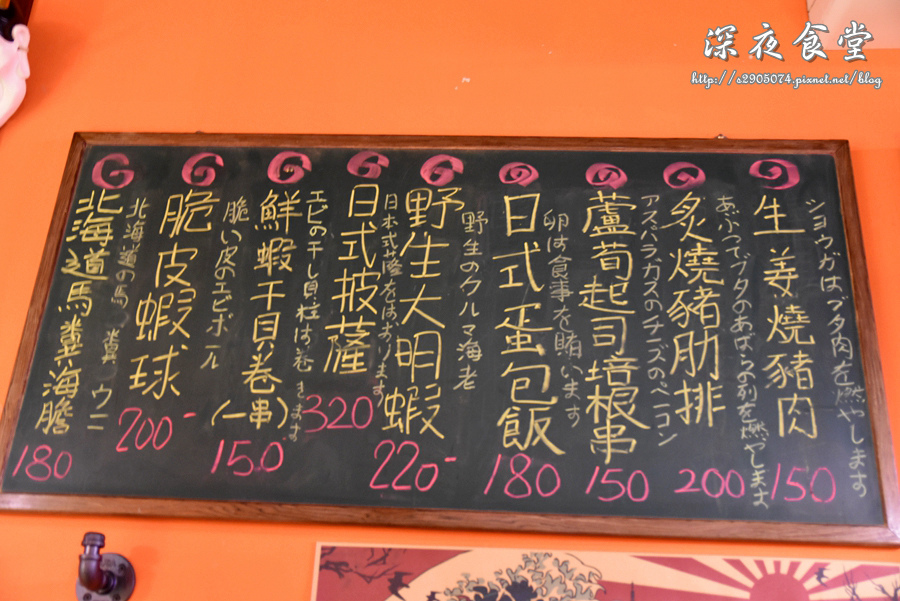 深夜食堂
http://s2905074.pixnet.net/blog
生姜燒豬肉
ショウガはブタ肉を燃やします
150
炙燒豬肋排
あぶってブタのあばら列を燃やします
200
蘆荀起司培根串
アスパラガスのチーズのベーコン
150
日式蛋包飯
卵は食事を賄います
180
野生大明蝦
野生のクルマ海老
220-
日式披薩
日本式薩をはおります
320
鮮蝦干貝卷(一串)
エビの干し貝柱は巻きます
150
脆皮蝦球
脆い皮のエビボール
200-
北海道馬糞海膽
北海道の馬糞ウニ
180